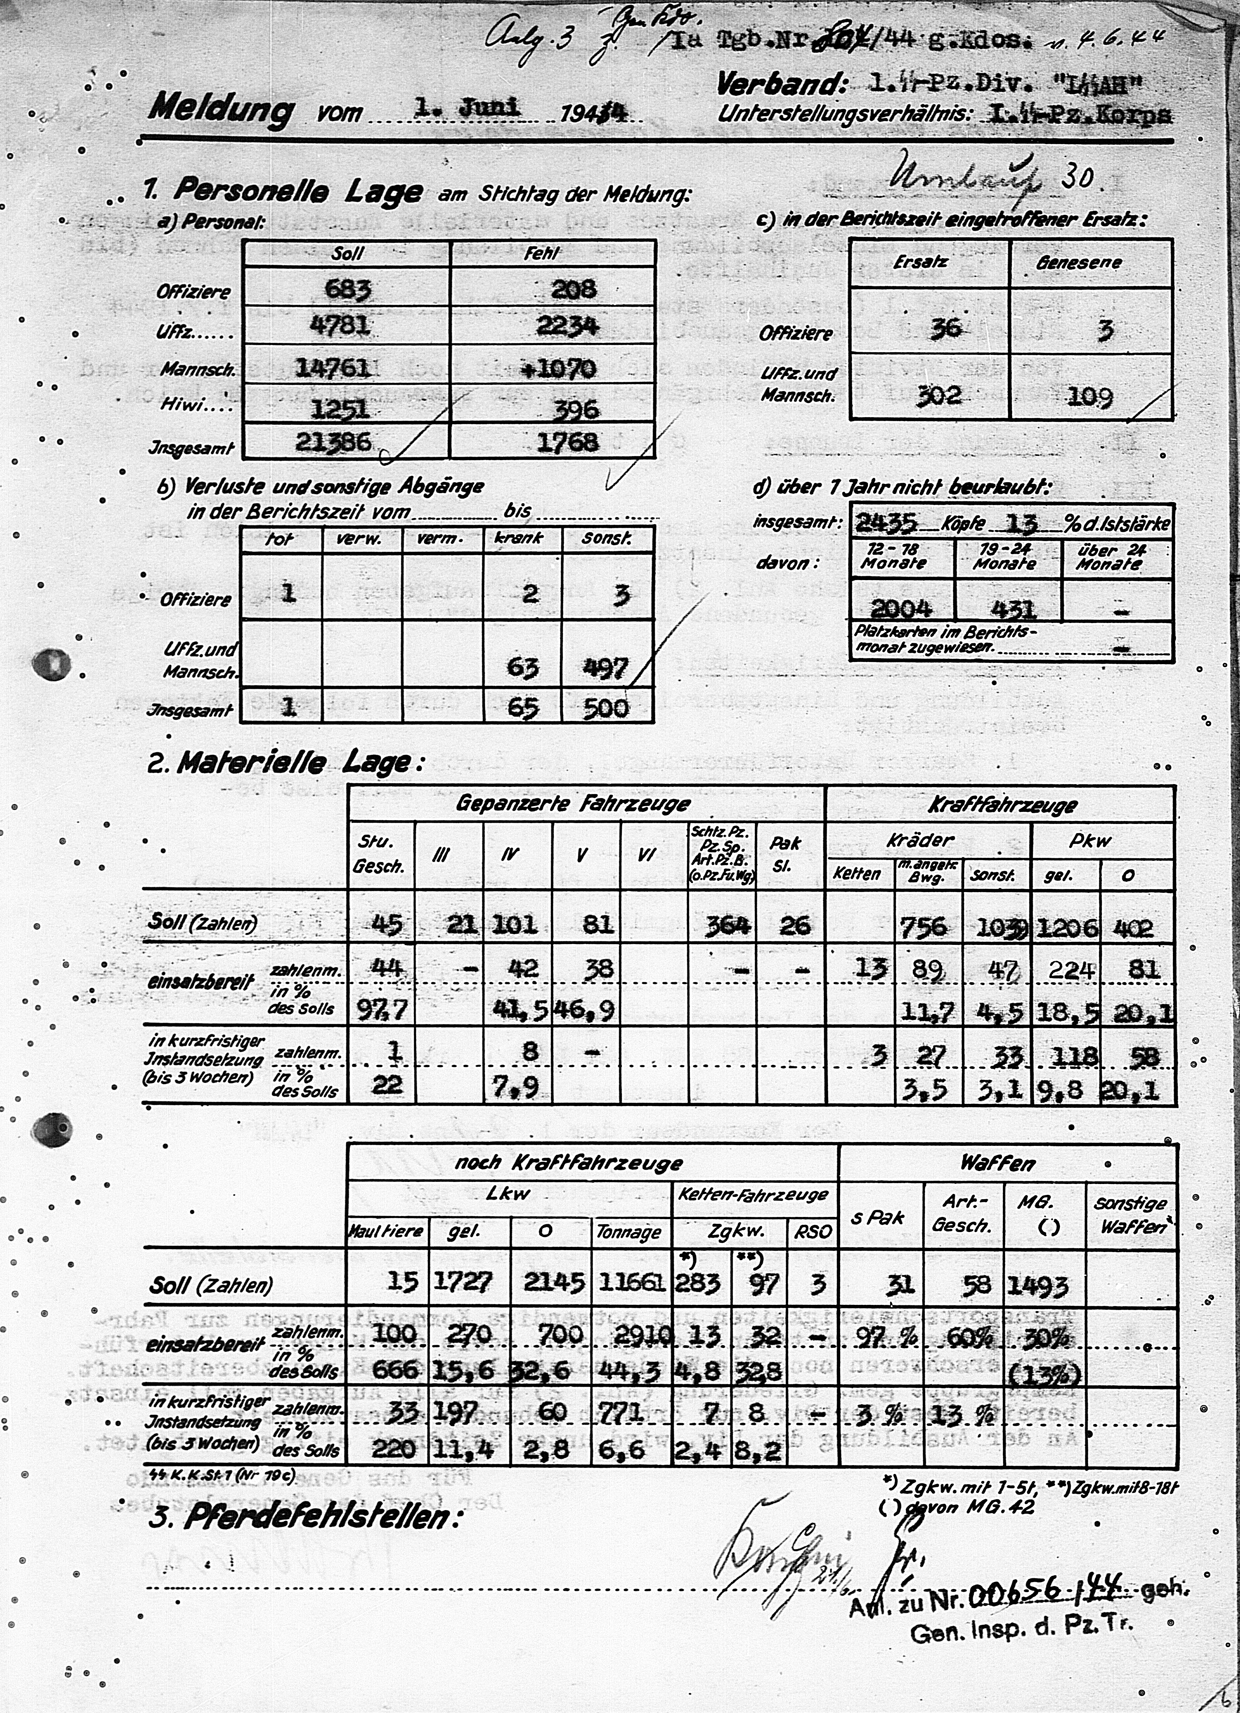 Anlg. 3 z. Gen Kdo. / Ia Tgb.Nr /44 g.Kdos. v. 4.6.44
Verband: 1.SS-Pz.Div. "LSSAH"
Meldung vom 1. Juni 1944 Unterstellungsverhältnis: I.SS-Pz.Korps
Umlauf 30.
1. Personelle Lage am Stichtag der Meldung:
a) Personal:
Soll Fehl
Offiziere 683 208
Uffz...... 4781 2234
Mannsch. 14761 +1070
Hiwi.... 1251 396
Insgesamt 21386 1768
c) in der Berichtszeit eingetroffener Ersatz:
Ersatz Genesene
Offiziere 36 3
Uffz.und
Mannsch. 302 109
b) Verluste und sonstige Abgänge
in der Berichtszeit vom bis
tot verw. verm. krank sonst.
Offiziere 1 2 3
Uffz.und
Mannsch. 63 497
Insgesamt 1 65 500
d) über 1 Jahr nicht beurlaubt:
insgesamt: 2435 Köpfe 13 % d. Iststärke
davon: 12-18 Monate 19-24 Monate über 24 Monate
2004 431 -
Platzkarten im Berichts-
monat zugewiesen. -
2. Materielle Lage:
Gepanzerte Fahrzeuge Kraftfahrzeuge
Stu. Gesch. III IV V VI Schtz.Pz. Pz.Sp. Art.Pz.B. (o.Pz.Fu.Wg) Pak Sl. Kräder Pkw
Ketten m.angetr. Bwg. sonst. gel. O
Soll (Zahlen) 45 21 101 81 364 26 756 1039 1206 402
einsatzbereit zahlenm. 44 - 42 38 - - 13 89 47 224 81
in % des Solls 97,7 41,5 46,9 11,7 4,5 18,5 20,1
in kurzfristiger Instandsetzung (bis 3 Wochen) zahlenm. 1 8 - 3 27 33 118 58
in % des Solls 22 7,9 3,5 3,1 9,8 20,1
noch Kraftfahrzeuge Waffen
Lkw Ketten-Fahrzeuge s Pak Art.-Gesch. MG. ( ) sonstige Waffen
Maultiere gel. O Tonnage Zgkw. RSO
*) **)
Soll (Zahlen) 15 1727 2145 11661 283 97 3 31 58 1493
einsatzbereit zahlenm. 100 270 700 2910 13 32 - 97 % 60% 30%
in % des Solls 666 15,6 32,6 44,3 4,8 32,8 (13%)
in kurzfristiger Instandsetzung (bis 3 Wochen) zahlenm. 33 197 60 771 7 8 - 3 % 13 %
in % des Solls 220 11,4 2,8 6,6 2,4 8,2
SS K.K.St.1 (Nr 19c)
*) Zgkw.mit 1-5t, **) Zgkw.mit 8-18t
( ) davon MG.42
3. Pferdefehlstellen:
Anl. zu Nr. 00656/44 geh.
Gen. Insp. d. Pz. Tr.
6